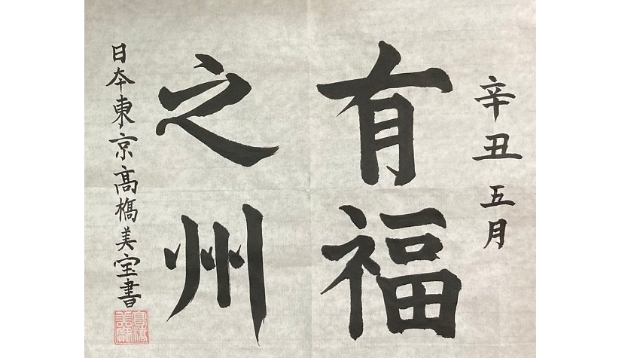 辛丑 五月
有福
之州
日本東京髙橋美宝書